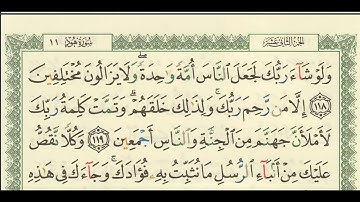 سُورَةُ هُودٍ ١١ الجُزْءُ الثَّانِي عَشَرَ
وَلَوْ شَآءَ رَبُّكَ لَجَعَلَ ٱلنَّاسَ أُمَّةً وَٰحِدَةً ۖ وَلَا يَزَالُونَ مُخْتَلِفِينَ
١١٨ إِلَّا مَن رَّحِمَ رَبُّكَ ۚ وَلِذَٰلِكَ خَلَقَهُمْ ۗ وَتَمَّتْ كَلِمَةُ رَبِّكَ
لَأَمْلَأَنَّ جَهَنَّمَ مِنَ ٱلْجِنَّةِ وَٱلنَّاسِ أَجْمَعِينَ ١١٩ وَكُلًّا نَّقُصُّ
عَلَيْكَ مِنْ أَنۢبَآءِ ٱلرُّسُلِ مَا نُثَبِّتُ بِهِۦ فُؤَادَكَ ۚ وَجَآءَكَ فِى هَٰذِهِ